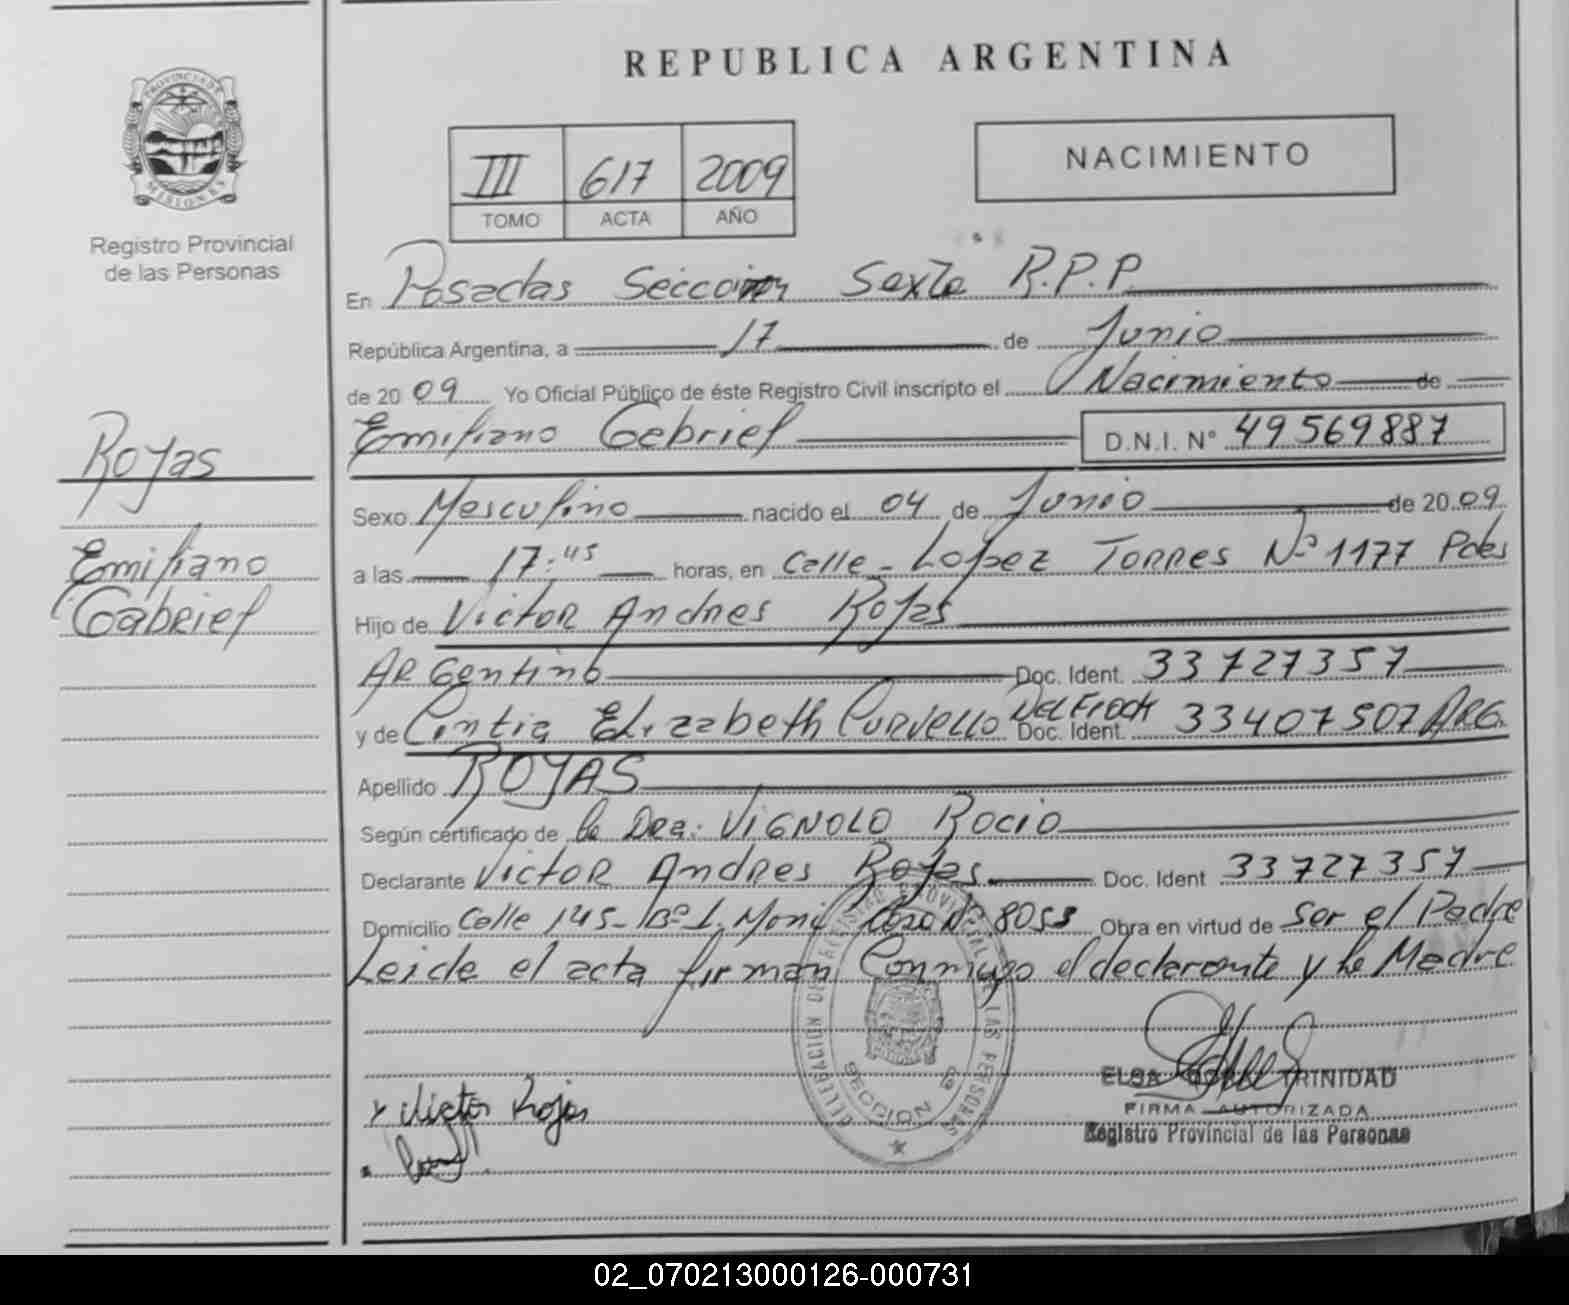 REPUBLICA ARGENTINA
PROVINCIA DE MISIONES
Registro Provincial
de las Personas
III 617 2009
TOMO ACTA AÑO
NACIMIENTO
En Posadas Sección Sexta R.P.P.
República Argentina, a 17 de Junio
de 2009 Yo Oficial Público de éste Registro Civil inscripto el Nacimiento de
Emiliano Gabriel D.N.I. N° 49569887
Rojas
Emiliano
Gabriel
Sexo Masculino nacido el 04 de Junio de 2009
a las 17:45 horas, en calle - López Torres N° 1177 Pdas
Hijo de Victor Andres Rojas
Argentino Doc. Ident. 33727357
y de Cintia Elizabeth Curvello Del Frade Doc. Ident. 33407507 ARG.
Apellido ROJAS
Según certificado de la Dra: VIGNOLO ROCIO
Declarante Victor Andres Rojas Doc. Ident 33727357
Domicilio Calle 145 - B° I. Moní Casa N° 8053 Obra en virtud de ser el Padre
Leída el acta firman Conmigo el declarante y la Madre
DELEGACION DEL REGISTRO PROVINCIAL DE LAS PERSONAS
SECCION 6ª
x Victor Rojas
ELSA TRINIDAD
FIRMA AUTORIZADA
Registro Provincial de las Personas
02_070213000126-000731